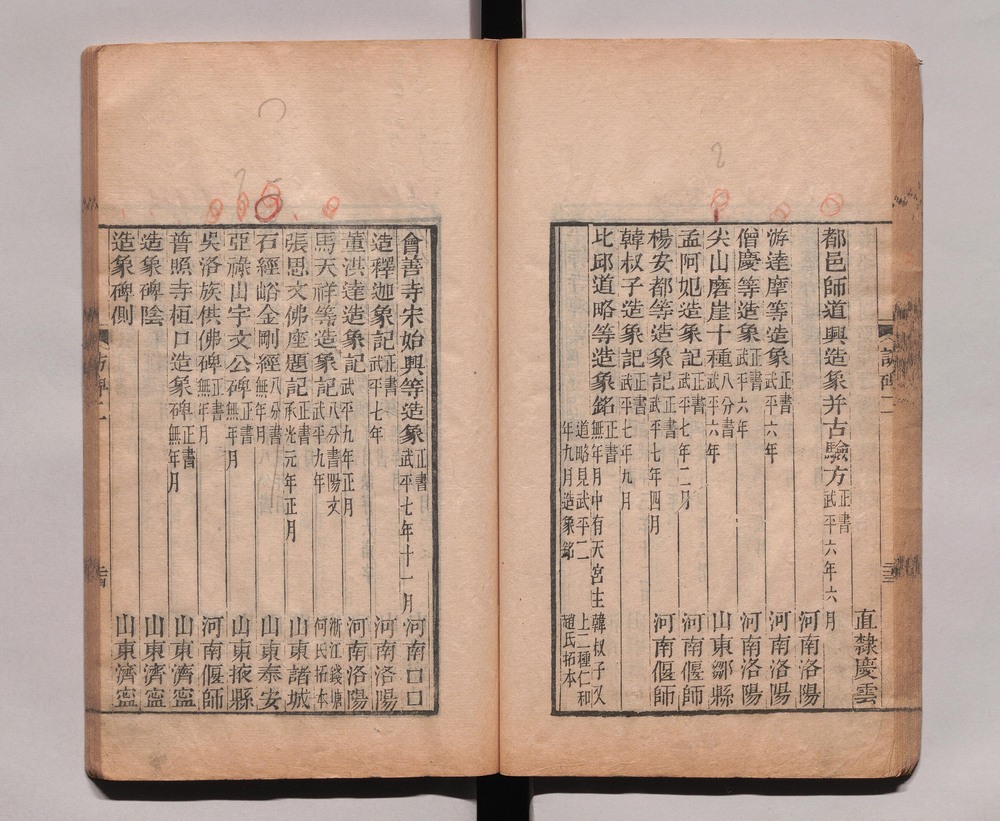 直隸慶雲
都邑師道興造象并古驗方 正書 武平六年六月 河南洛陽
游達摩等造象 正書 武平六年 河南洛陽
僧慶等造象 正書 武平六年 河南洛陽
尖山磨崖十種 八分書 武平六年 山東鄒縣
孟阿妃造象記 正書 武平七年二月 河南偃師
楊安都等造象記 正書 武平七年四月 河南偃師
韓叔子造象記 正書 武平七年九月
比邱道略等造象銘 正書 無年月中有天宮生韓叔子又
道略見武平二年九月造象銘 上二種仁和趙氏拓本
會善寺宋始興等造象 正書 武平七年十一月 河南口口
造釋迦象記 正書 武平七年 河南洛陽
董洪達造象記 武平九年正月 河南洛陽
馬天祥等造象記 八分書陽文 武平九年 浙江錢塘何氏拓本
張思文佛座題記 正書 承光元年正月 山東諸城
石經峪金剛經 八分書 無年月 山東泰安
亞祿山宇文公碑 正書 無年月 山東掖縣
吳洛族供佛碑 正書 無年月 河南偃師
普照寺桓口造象碑 正書 無年月 山東濟寧
造象碑陰 山東濟寧
造象碑側 山東濟寧
訪碑二